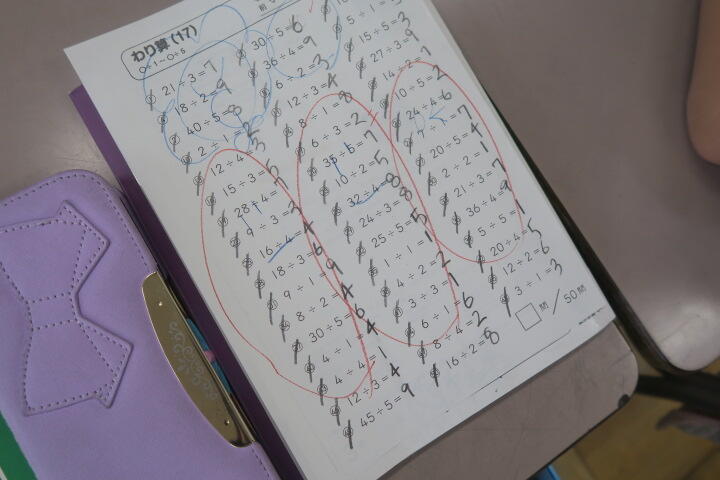 わり算(17)
○÷1～○÷5
21÷3=7
18÷2=9
40÷5=8
2÷1=2
12÷4=3
15÷3=5
28÷4=7
9÷3=3
16÷4=4
18÷3=6
9÷1=9
8÷2=4
30÷5=6
4÷1=4
4÷4=1
12÷3=4
45÷5=9
30÷5=6
36÷4=9
6÷2=3
12÷3=4
8÷1=8
6÷3=2
35÷5=7
10÷2=5
32÷4=8
24÷3=8
25÷5=5
1÷1=1
4÷2=2
3÷3=1
6÷1=6
8÷4=2
16÷2=8
15÷5=3
27÷3=9
14÷2=7
10÷5=2
24÷4=6
7÷1=7
20÷5=4
2÷2=1
21÷3=7
36÷4=9
5÷5=1
20÷4=5
12÷2=6
3÷1=3
問／50問